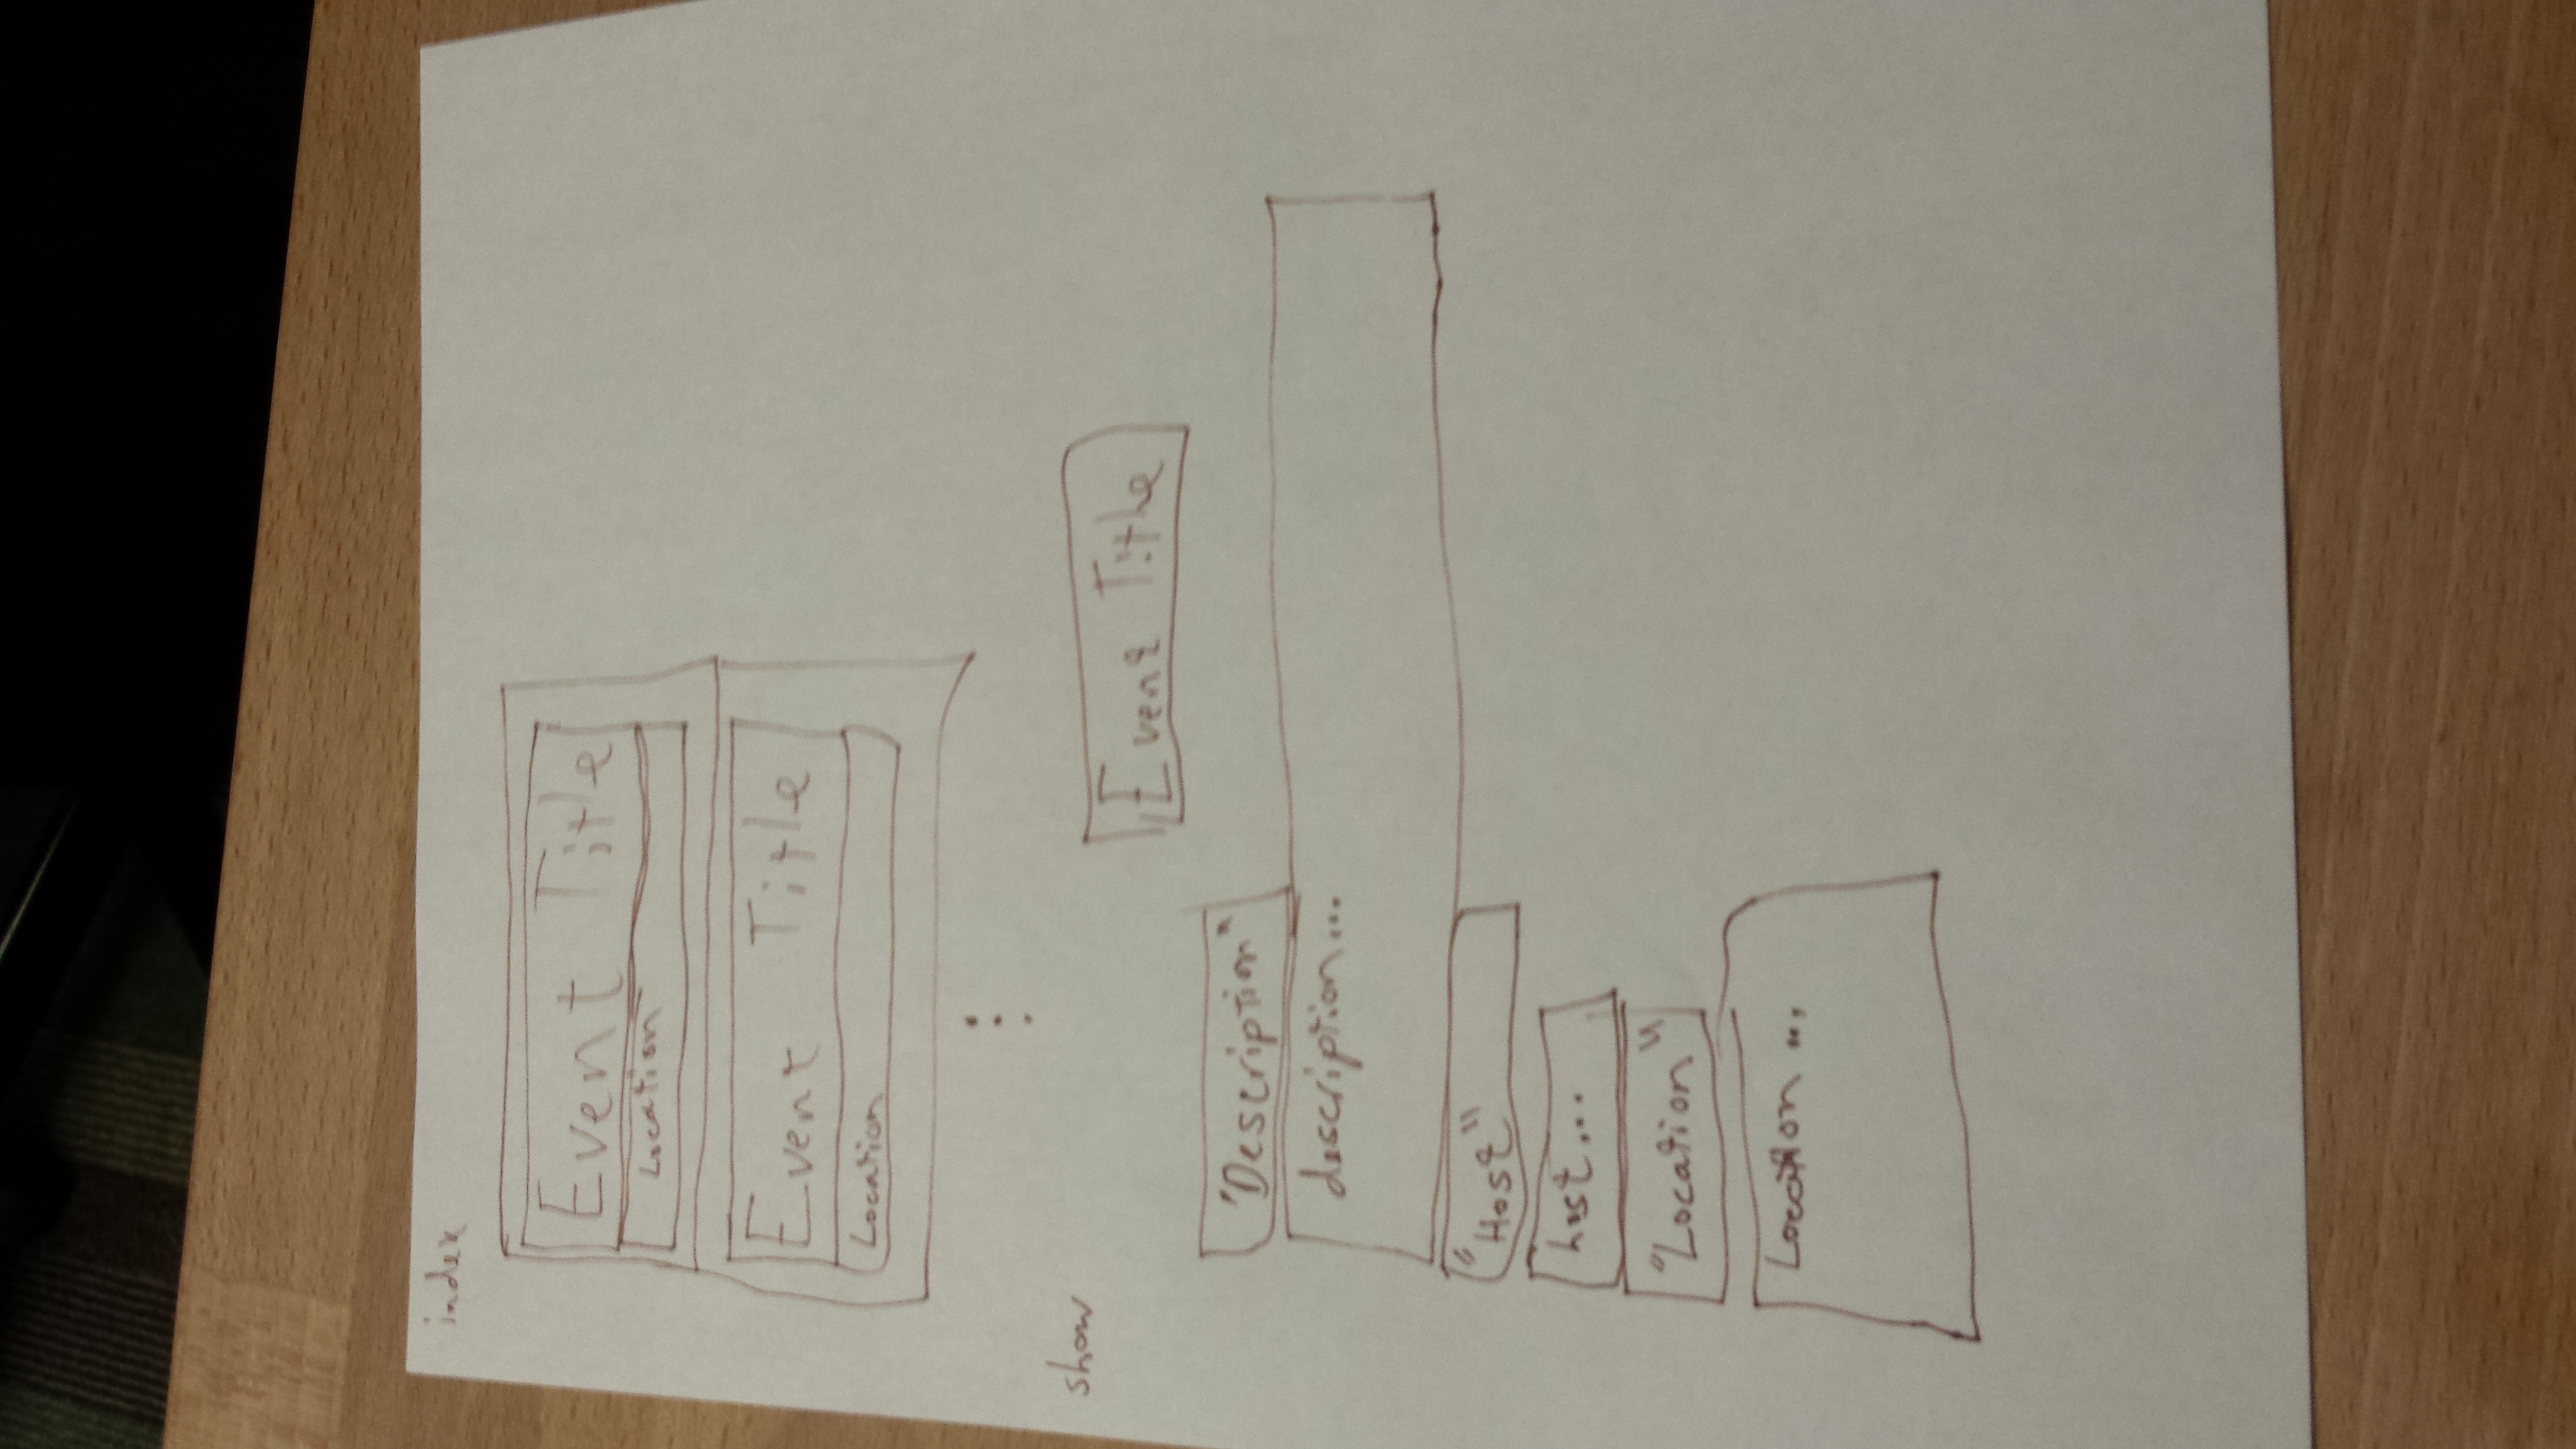 index
Event Title
Location
Event Title
Location
⋮
show
Event Title
"Description"
description...
"Host"
host...
"Location"
Location...